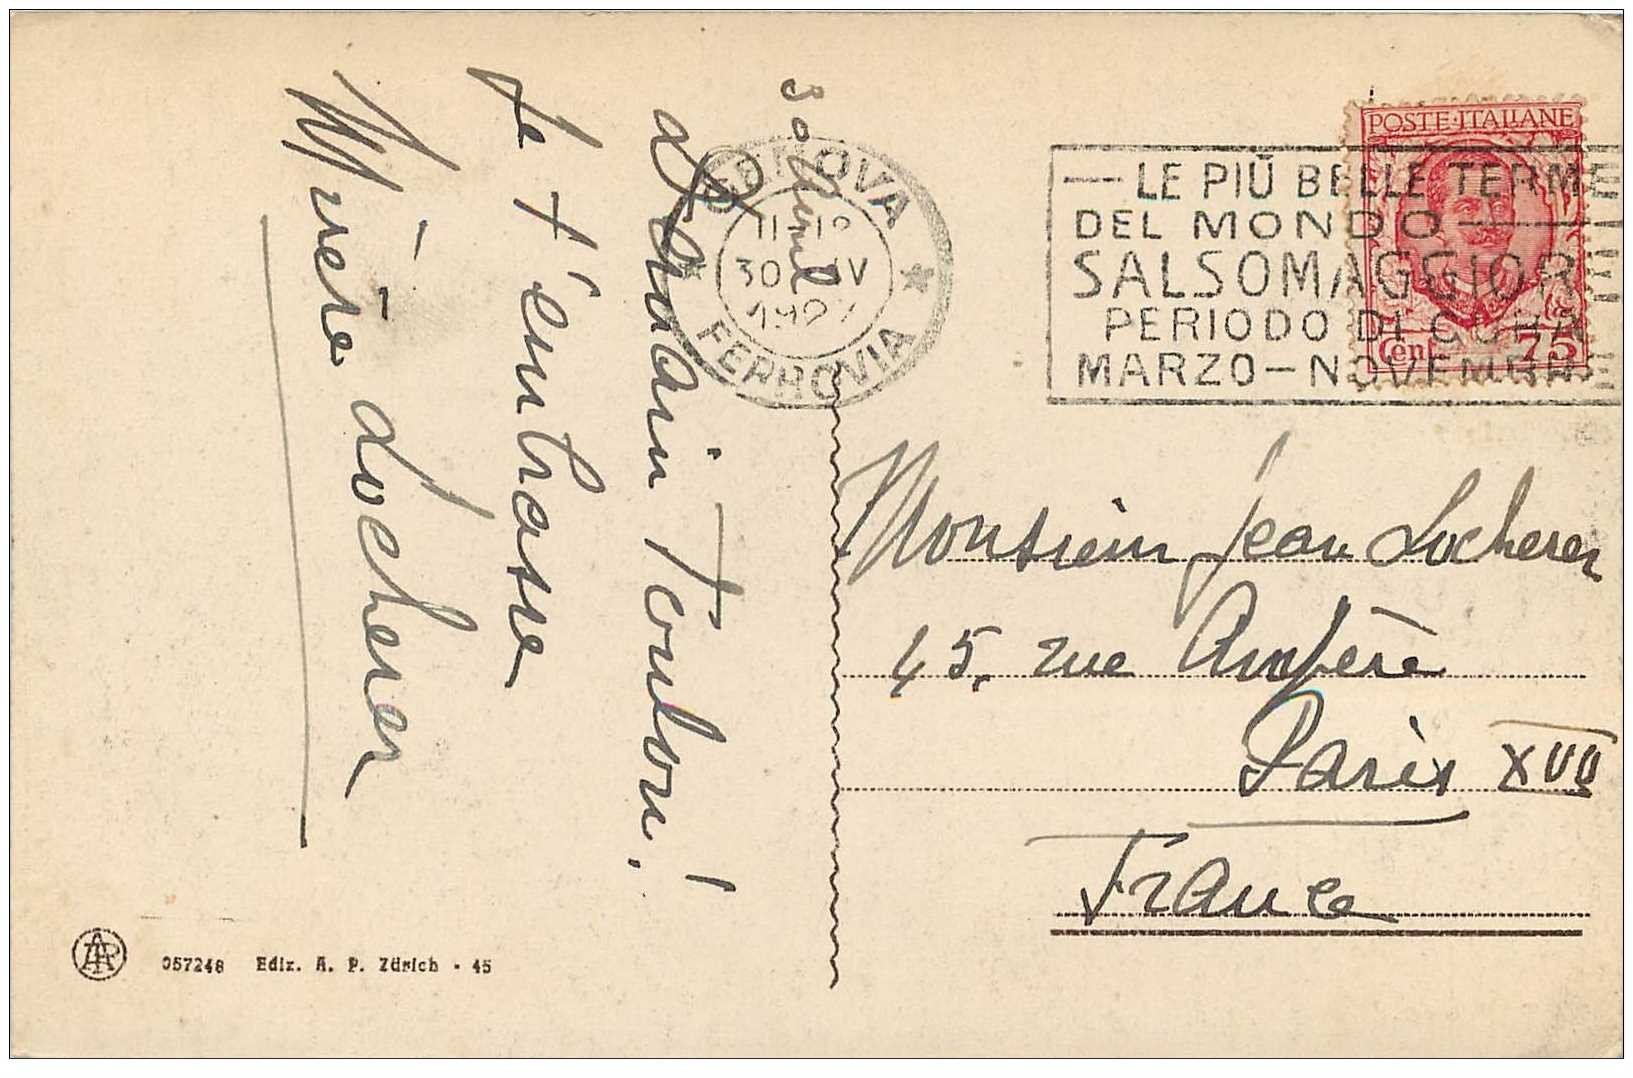 30 Avril
Demain Toulon!
Je t'embrasse
Locherer
GENOVA
30 IV
FERROVIA
POSTE·ITALIANE
Cen 75
— LE PIÙ BELLE TERME
DEL MONDO —
SALSOMAGGIOR
PERIODO DI CURA
MARZO — NOVEMBRE
Monsieur Jean Locherer
45, rue Ampère
Paris XVII
France
AR
057248 Ediz. A. P. Zürich - 45